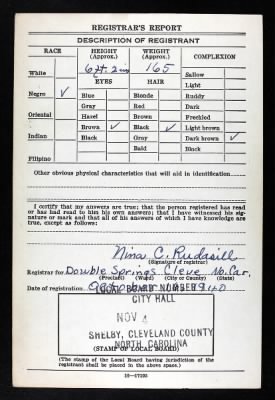 REGISTRAR'S REPORT
DESCRIPTION OF REGISTRANT
RACE
HEIGHT
(Approx.)
WEIGHT
(Approx.)
COMPLEXION
6 ft. 2 in
165
Sallow
White
EYES
HAIR
Light
Negro ✓
Blue
Blonde
Ruddy
Gray
Red
Dark
Oriental
Hazel
Brown
Freckled
Brown ✓
Black ✓
Light brown
Indian
Black
Gray
Dark brown ✓
Bald
Black
Filipino
Other obvious physical characteristics that will aid in identification
I certify that my answers are true; that the person registered has read
or has had read to him his own answers; that I have witnessed his sig-
nature or mark and that all of his answers of which I have knowledge are
true, except as follows:
Nina C. Rudasill
(Signature of registrar)
Registrar for Double Springs Cleve No. Car.
(Precinct) (Ward) (City or County) (State)
Date of registration October 16, 1940
LOCAL BOARD NUMBER 1
CITY HALL
NOV 4
SHELBY, CLEVELAND COUNTY
NORTH CAROLINA
(STAMP OF LOCAL BOARD)
(The stamp of the Local Board having jurisdiction of the
registrant shall be placed in the above space.)